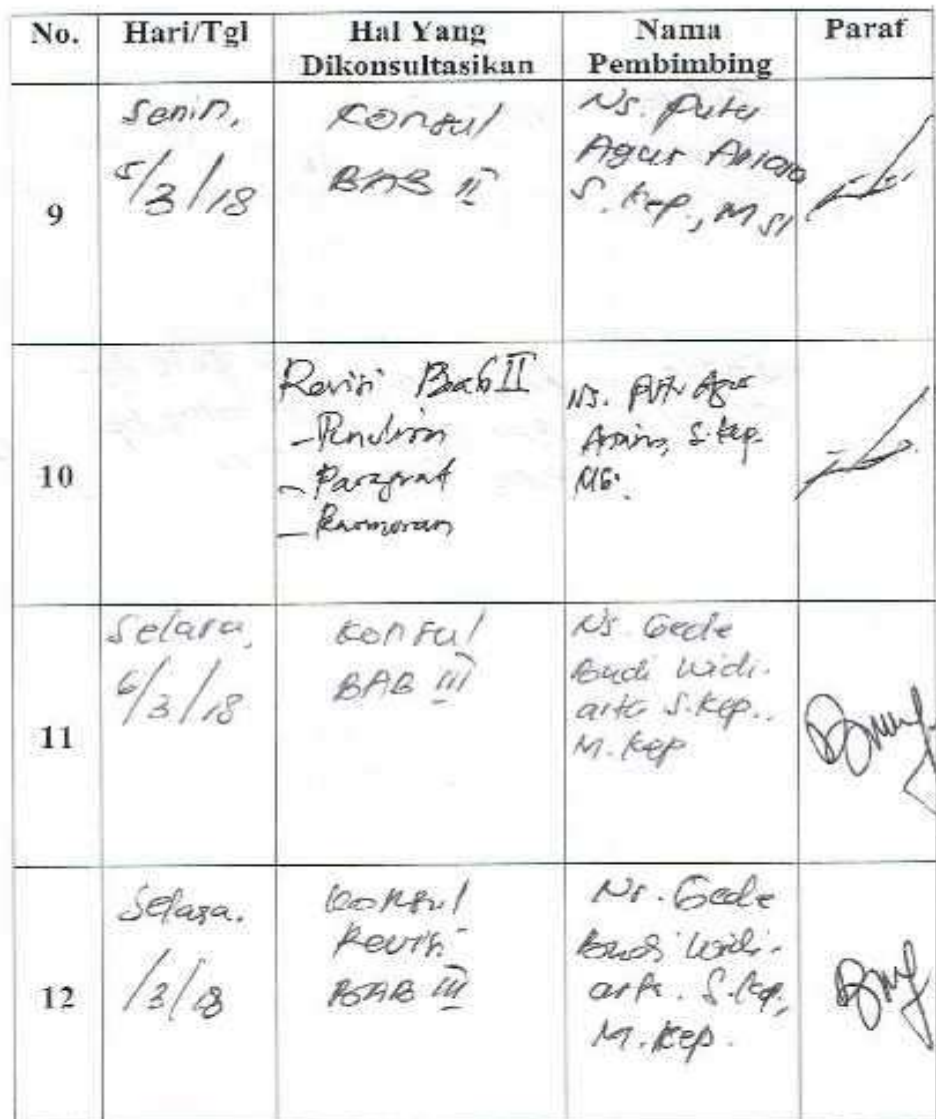 No. Hari/Tgl Hal Yang Dikonsultasikan Nama Pembimbing Paraf
9
Senin,
5/3/18
Konsul
BAB II
Ns. Putu
Agus Ariana
S. Kep., M SI
10
Revisi Bab II
- Penulisan
- Paragraf
-
Ns. Putu Agus
Ariana, S. Kep.
11
Selasa,
6/3/18
Konsul
BAB III
Ns. Gede
Budi Widi-
arta S.Kep..
M. Kep
12
Selasa.
/3/18
Konsul
Revisi
BAB III
Ns. Gede
Budi Widi-
arta. S. Kep,
M. Kep.